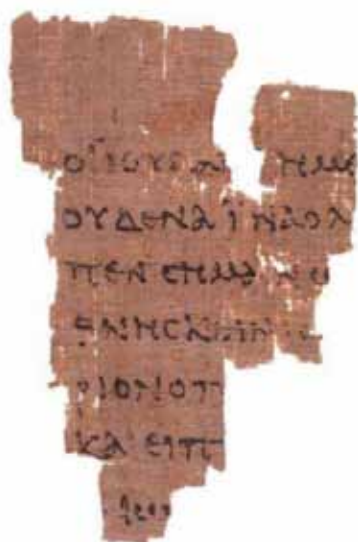 ΟΪΙΟΥΔΑΙ ΗΜΕ
ΟΥΔΕΝΑΪΝΑΟΛ
ΠΕΝ CΗΜΑΙΝΩ
ΘΝΗCΚΕΙΝ
ΡΙΟΝΟΠ
ΚΑΙ ΕΙΠ